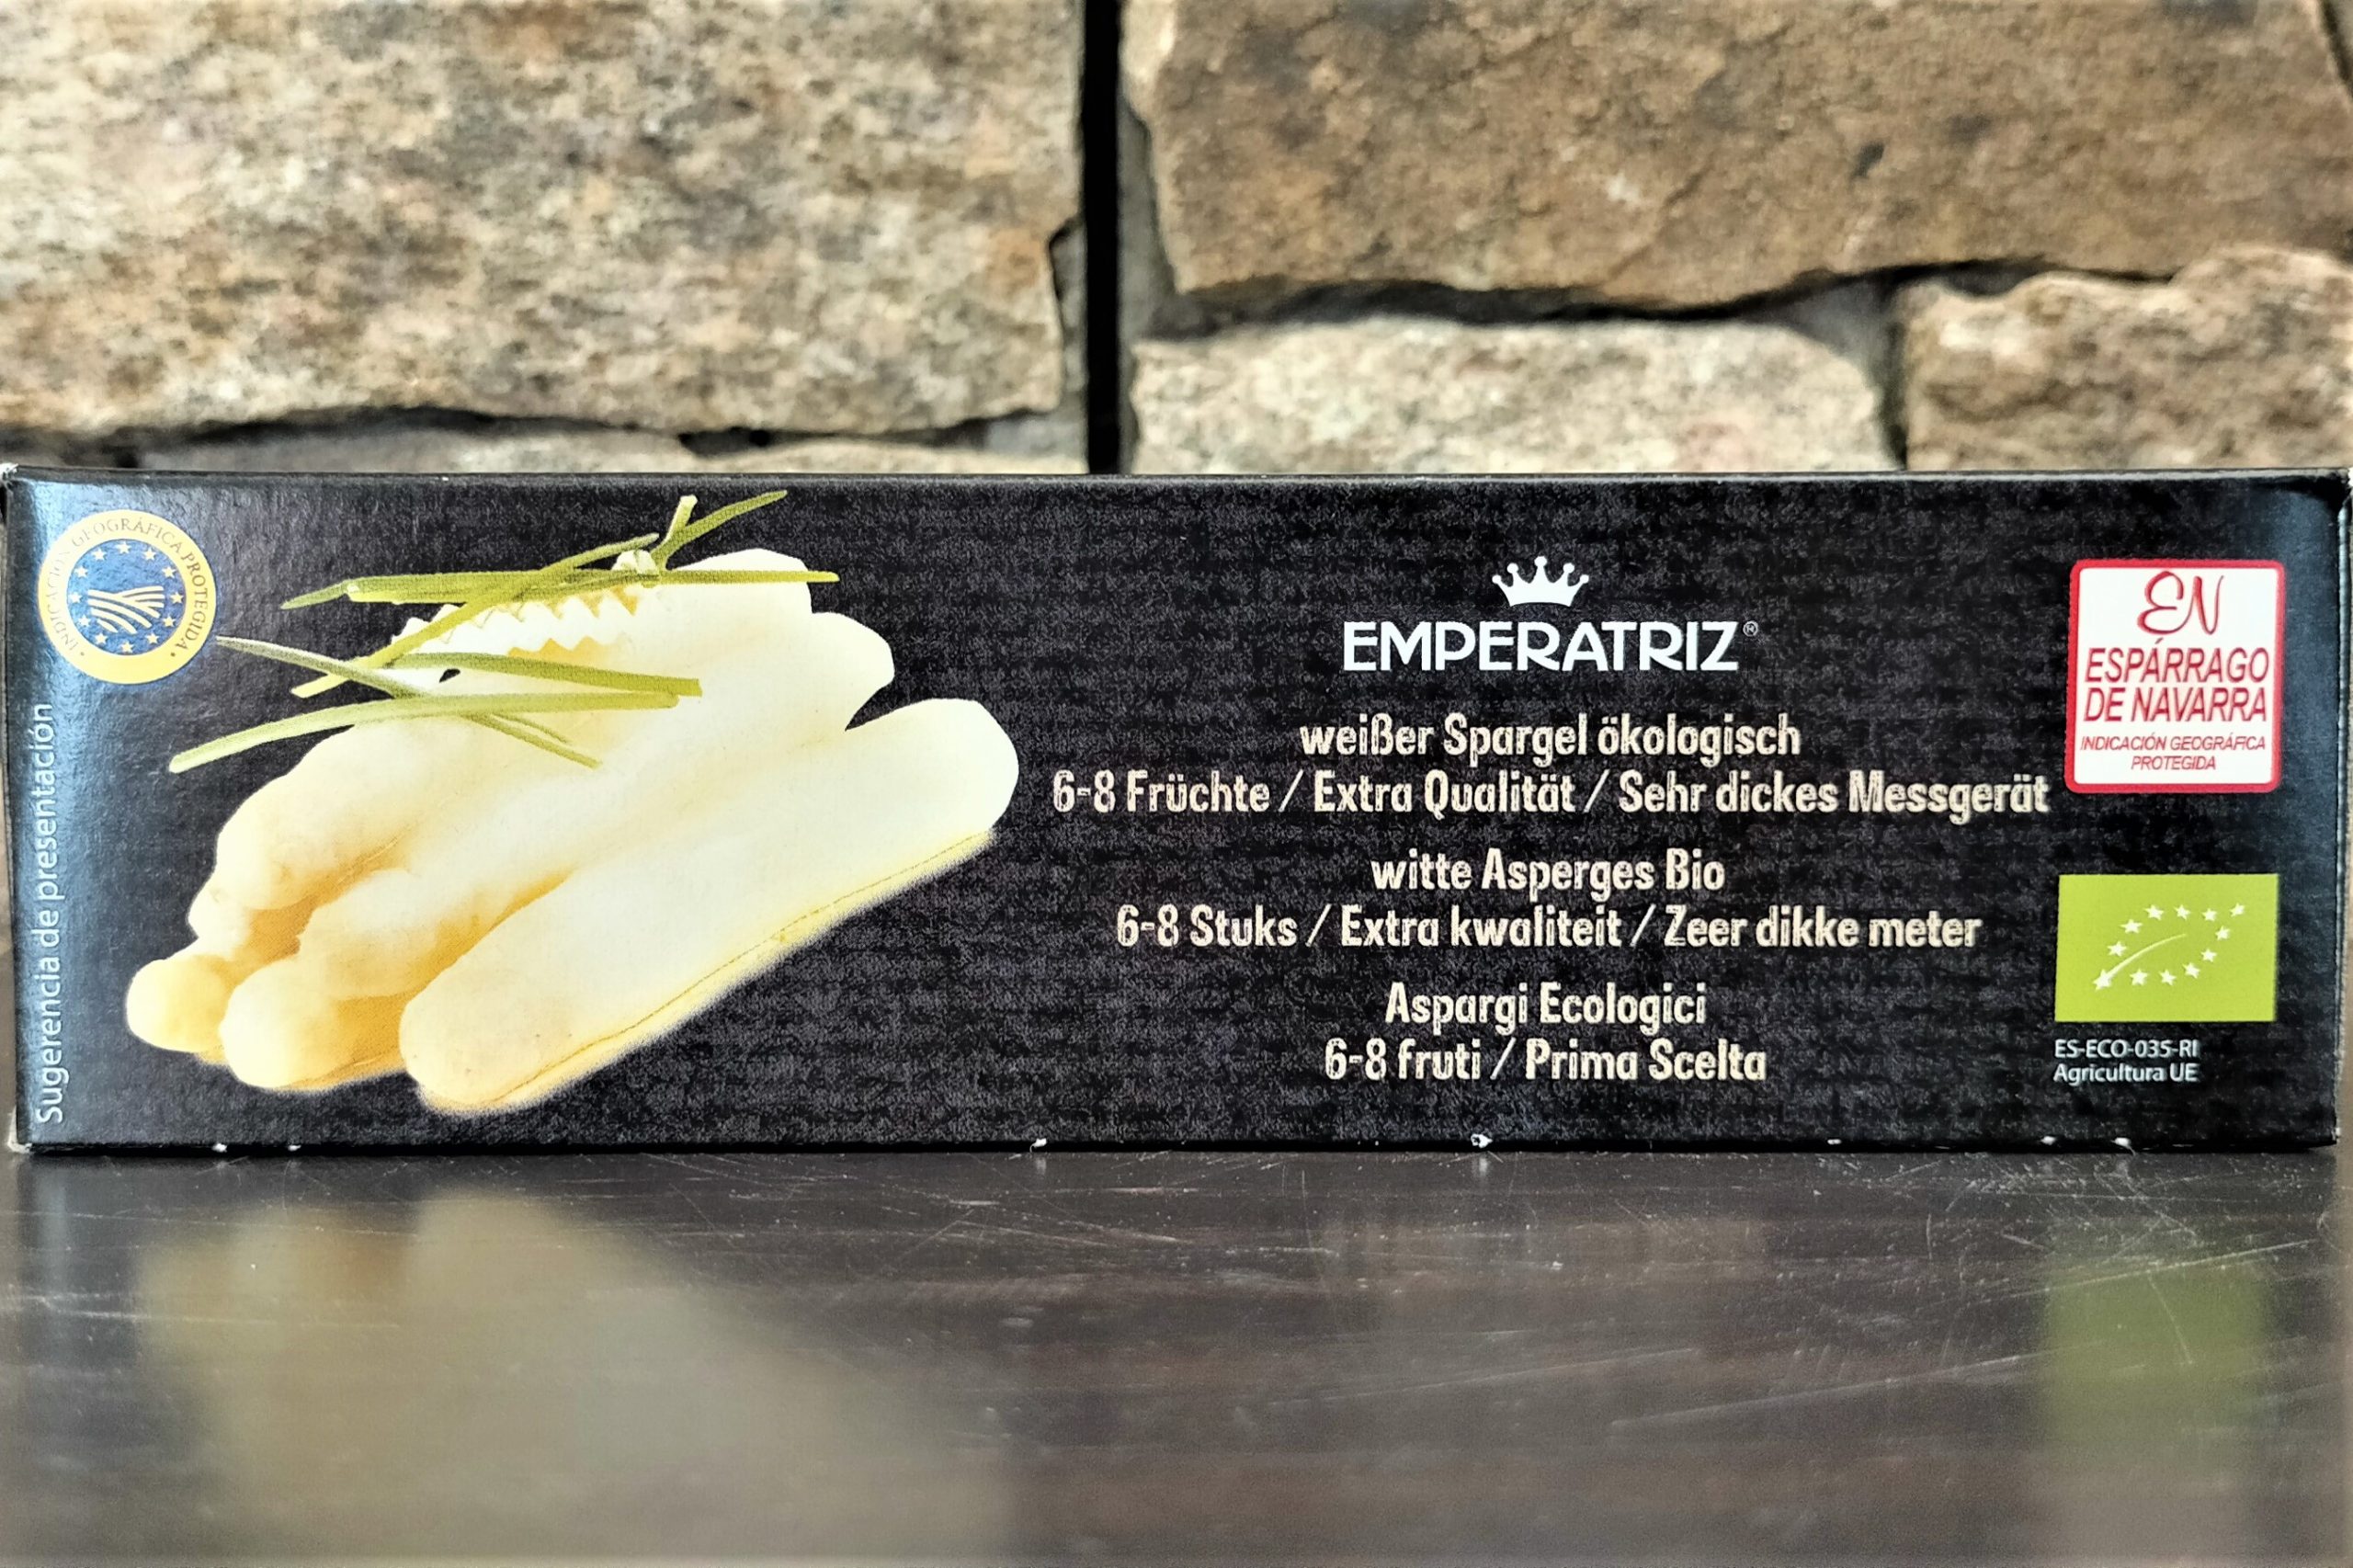 INDICACIÓN GEOGRÁFICA PROTEGIDA
Sugerencia de presentación
EMPERATRIZ®
weißer Spargel ökologisch
6-8 Früchte / Extra Qualität / Sehr dickes Messgerät
witte Asperges Bio
6-8 Stuks / Extra kwaliteit / Zeer dikke meter
Aspargi Ecologici
6-8 fruti / Prima Scelta
EN
ESPÁRRAGO
DE NAVARRA
INDICACIÓN GEOGRÁFICA
PROTEGIDA
ES-ECO-035-RI
Agricultura UE